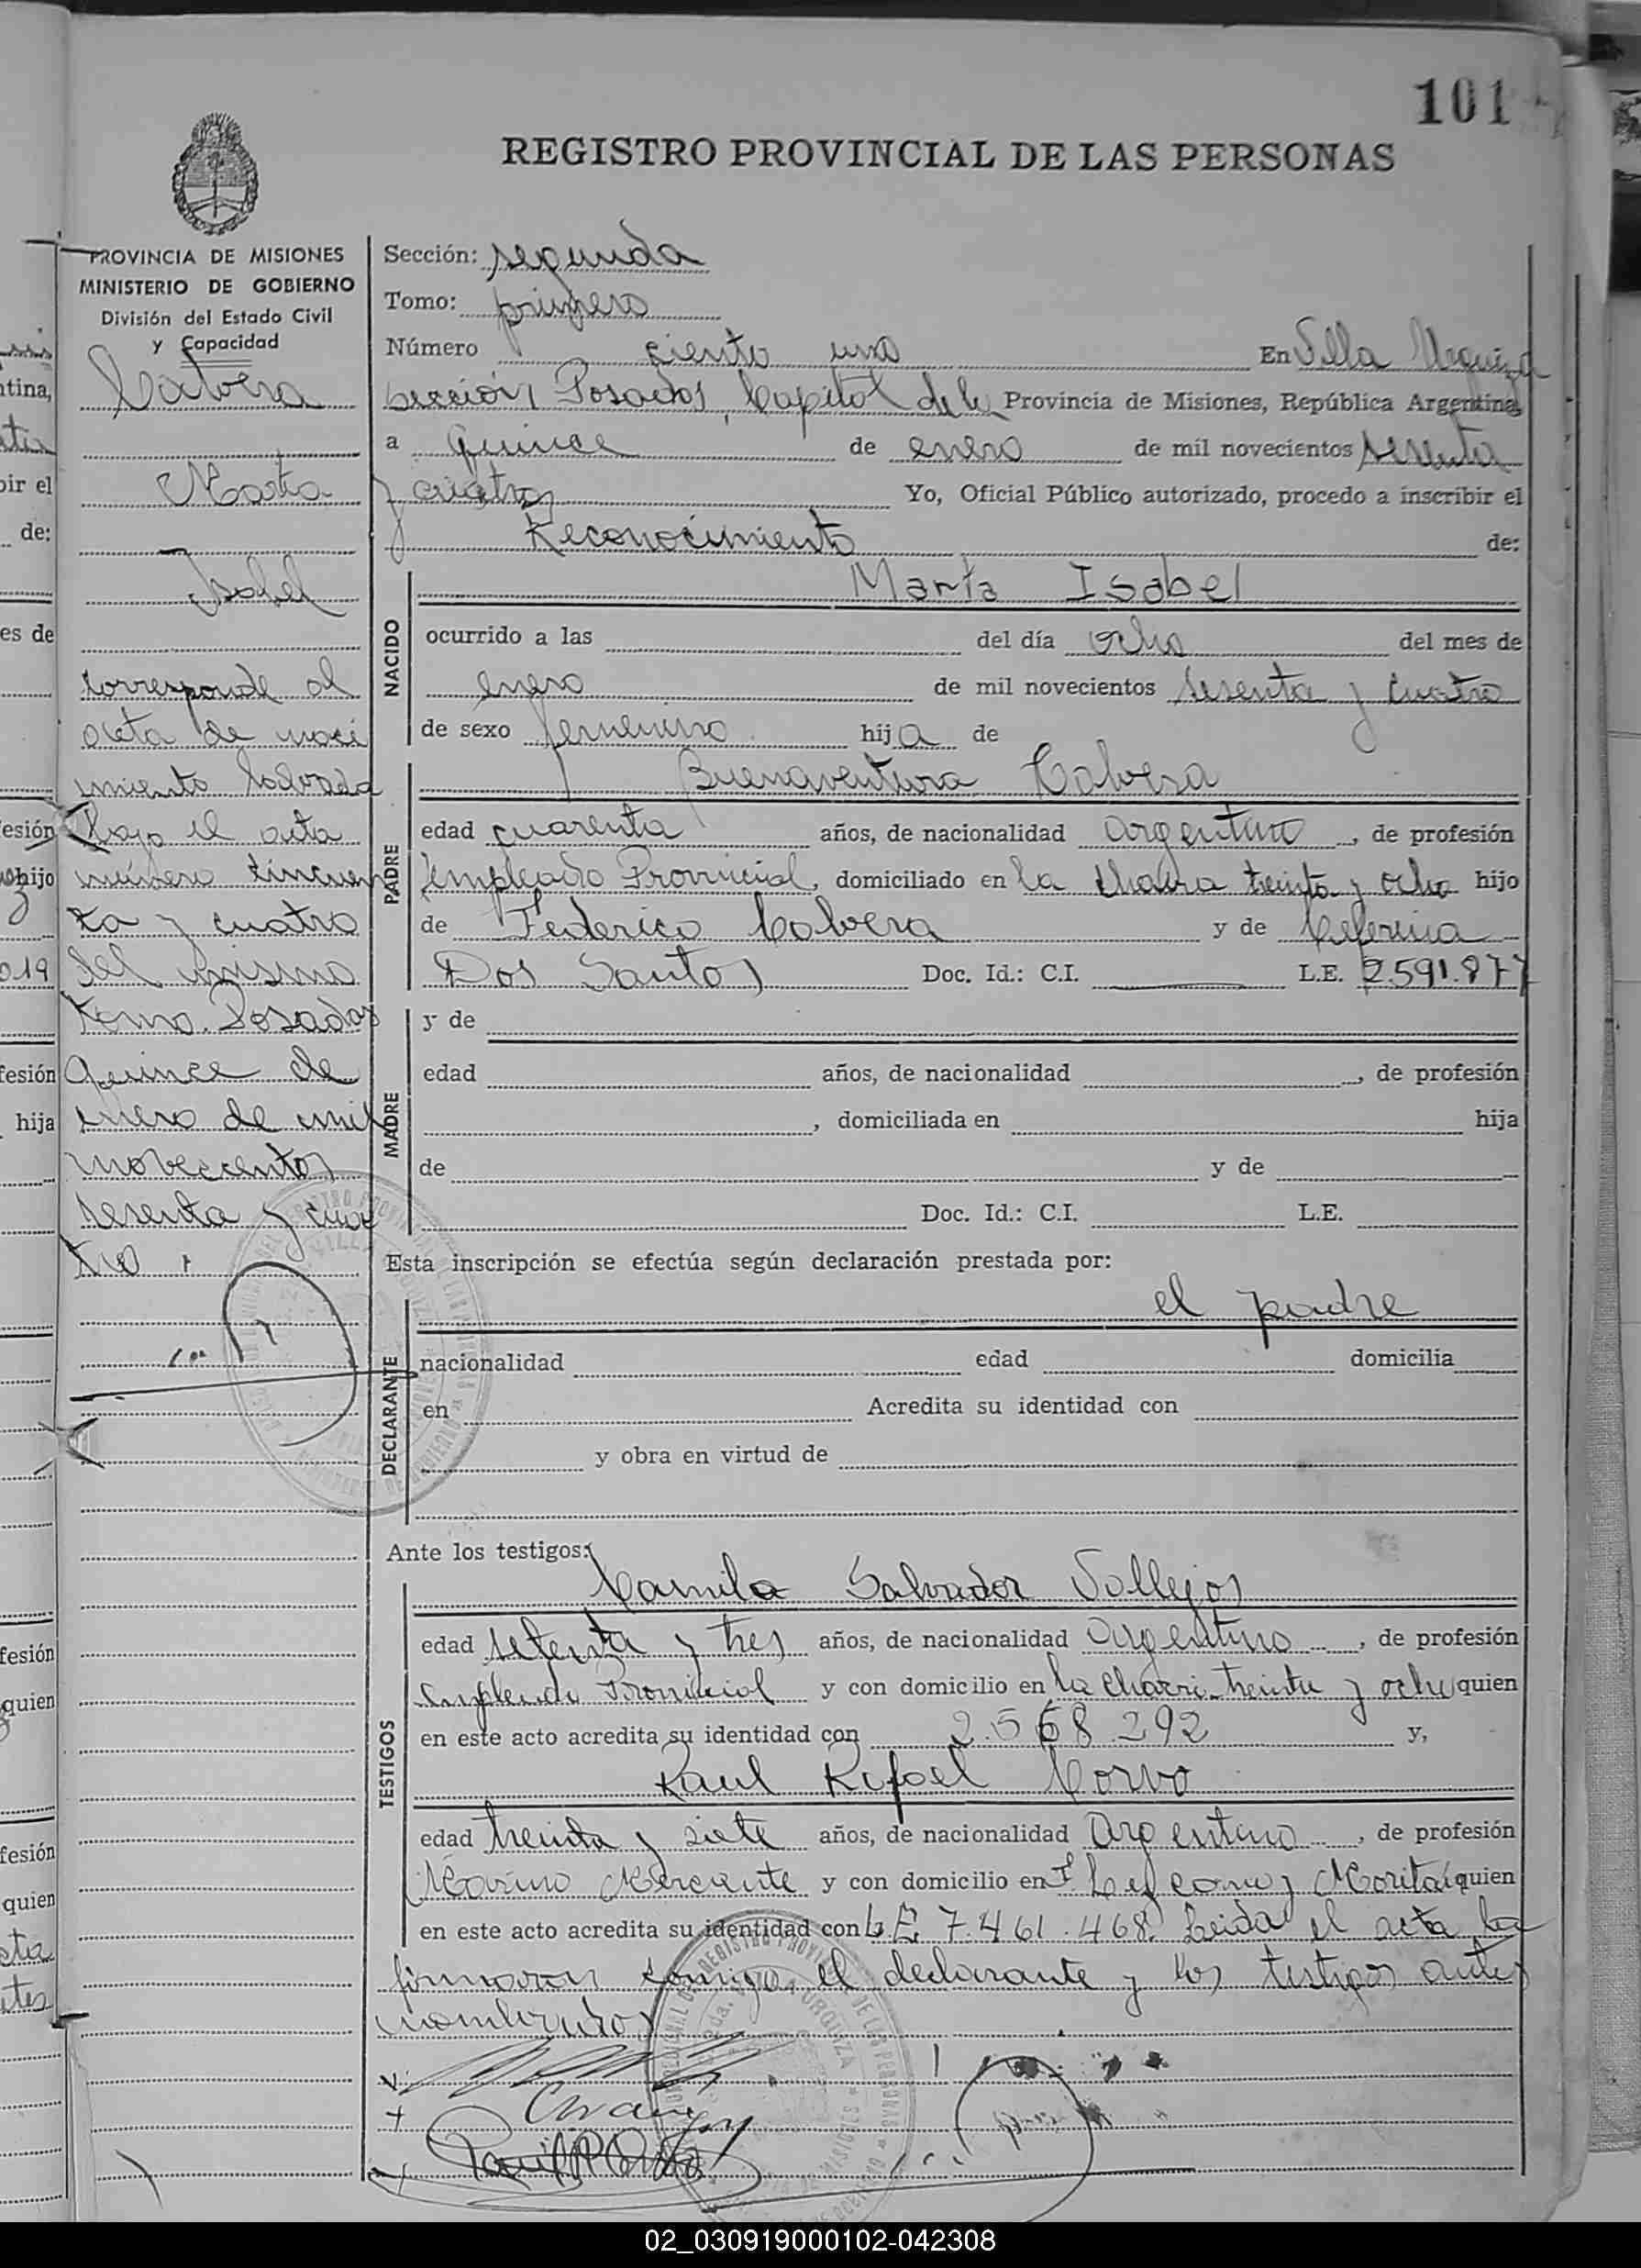 101
REGISTRO PROVINCIAL DE LAS PERSONAS
PROVINCIA DE MISIONES
MINISTERIO DE GOBIERNO
División del Estado Civil
y Capacidad
Marta
Isabel
corresponde al
acta de naci
miento labrada
bajo el acta
número cincuen
ta y cuatro
del mismo
tomo. Posadas
quince de
enero de mil
novecientos
sesenta y cua
tro
Sección: segunda
Tomo: primero
Número ciento uno En Villa Urquiza
sección Posadas, Capital de la Provincia de Misiones, República Argentina,
a quince de enero de mil novecientos sesenta
y cuatro Yo, Oficial Público autorizado, procedo a inscribir el
Reconocimiento de:
NACIDO
Marta Isabel
ocurrido a las del día ocho del mes de
enero de mil novecientos sesenta y cuatro
de sexo femenino hija de
PADRE
Buenaventura
edad cuarenta años, de nacionalidad argentino, de profesión
Empleado Provincial, domiciliado en la chacra treinta y ocho hijo
de Federico y de Ceferina
Dos Santos Doc. Id.: C.I. L.E. 2.591.877
MADRE
y de
edad años, de nacionalidad , de profesión
, domiciliada en hija
de y de
Doc. Id.: C.I. L.E.
Esta inscripción se efectúa según declaración prestada por:
el padre
DECLARANTE
nacionalidad edad domicilia
en Acredita su identidad con
y obra en virtud de
Ante los testigos:
TESTIGOS
Camilo Salvador Vallejos
edad setenta y tres años, de nacionalidad argentino, de profesión
Empleado Provincial y con domicilio en la chacra treinta y ocho quien
en este acto acredita su identidad con 2.568.292 y,
Raul Rafael
edad treinta y siete años, de nacionalidad Argentino, de profesión
Marino Mercante y con domicilio en quien
en este acto acredita su identidad con L E 7.461.468. Leida el acta la
firmaron conmigo el declarante y los testigos antes
nombrados
02_030919000102-042308